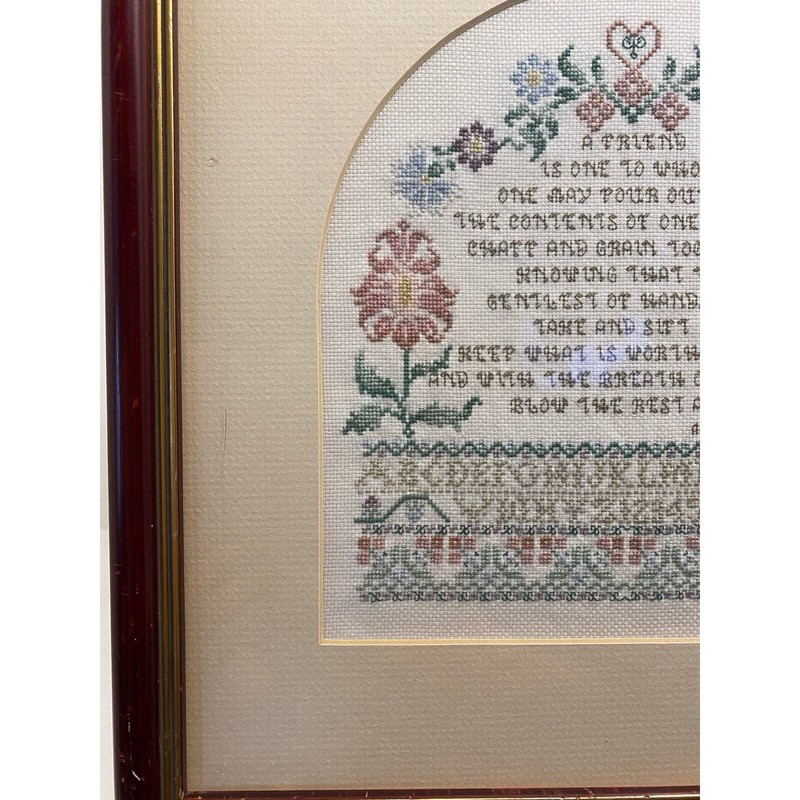 A FRIEND
IS ONE TO WHO
ONE MAY POUR OUT
THE CONTENTS OF ONE
CHAFF AND GRAIN TOG
KNOWING THAT T
GENTLEST OF HAND
TAKE AND SIFT
KEEP WHAT IS WORTH
AND WITH THE BREATH O
BLOW THE REST A
ABCDEFGHIJKLM
VWXYZ1234